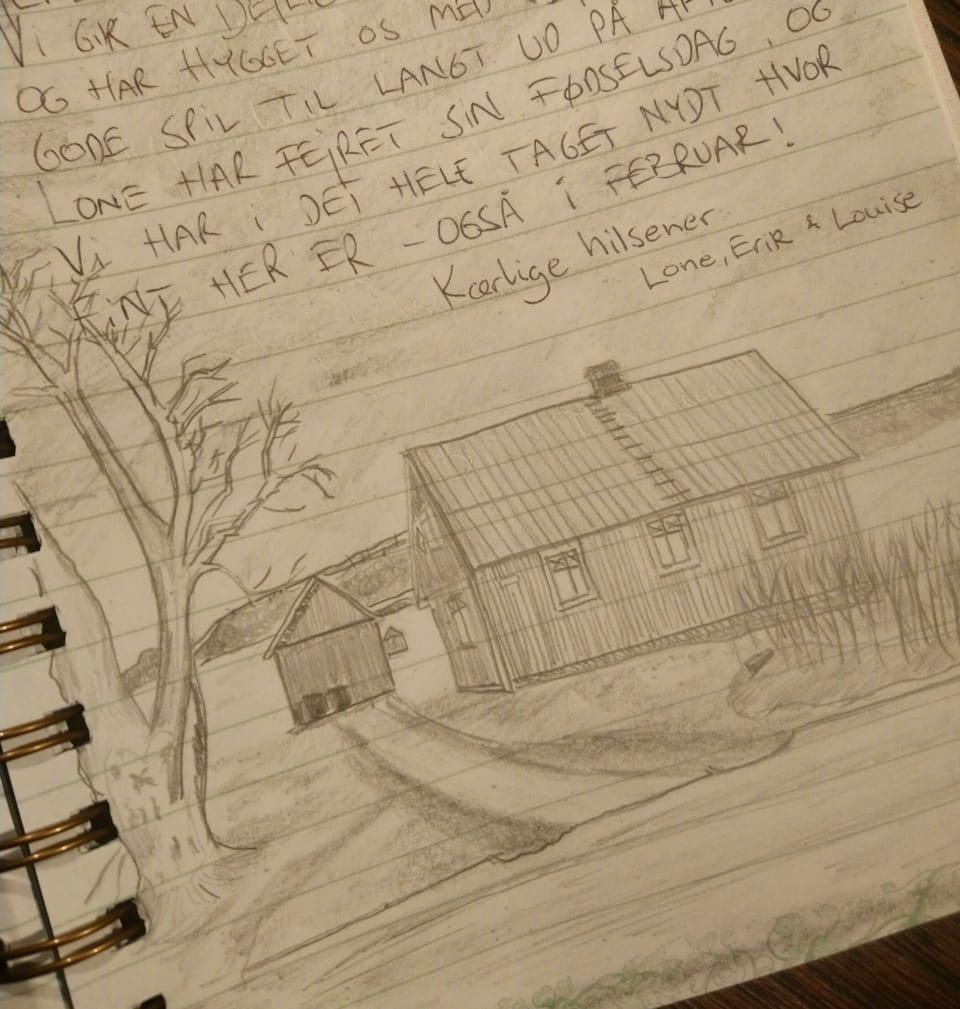 Vi GIK EN
OG HAR HYGGET OS MED
GODE SPIL TIL LANGT UD PÅ
LONE HAR FEJRET SIN FØDSELSDAG, OG
Vi HAR i DET HELE TAGET NYDT HVOR
FiNT HER ER - OGSÅ i FEBRUAR!
Kærlige hilsener
Lone, Erik & Louise